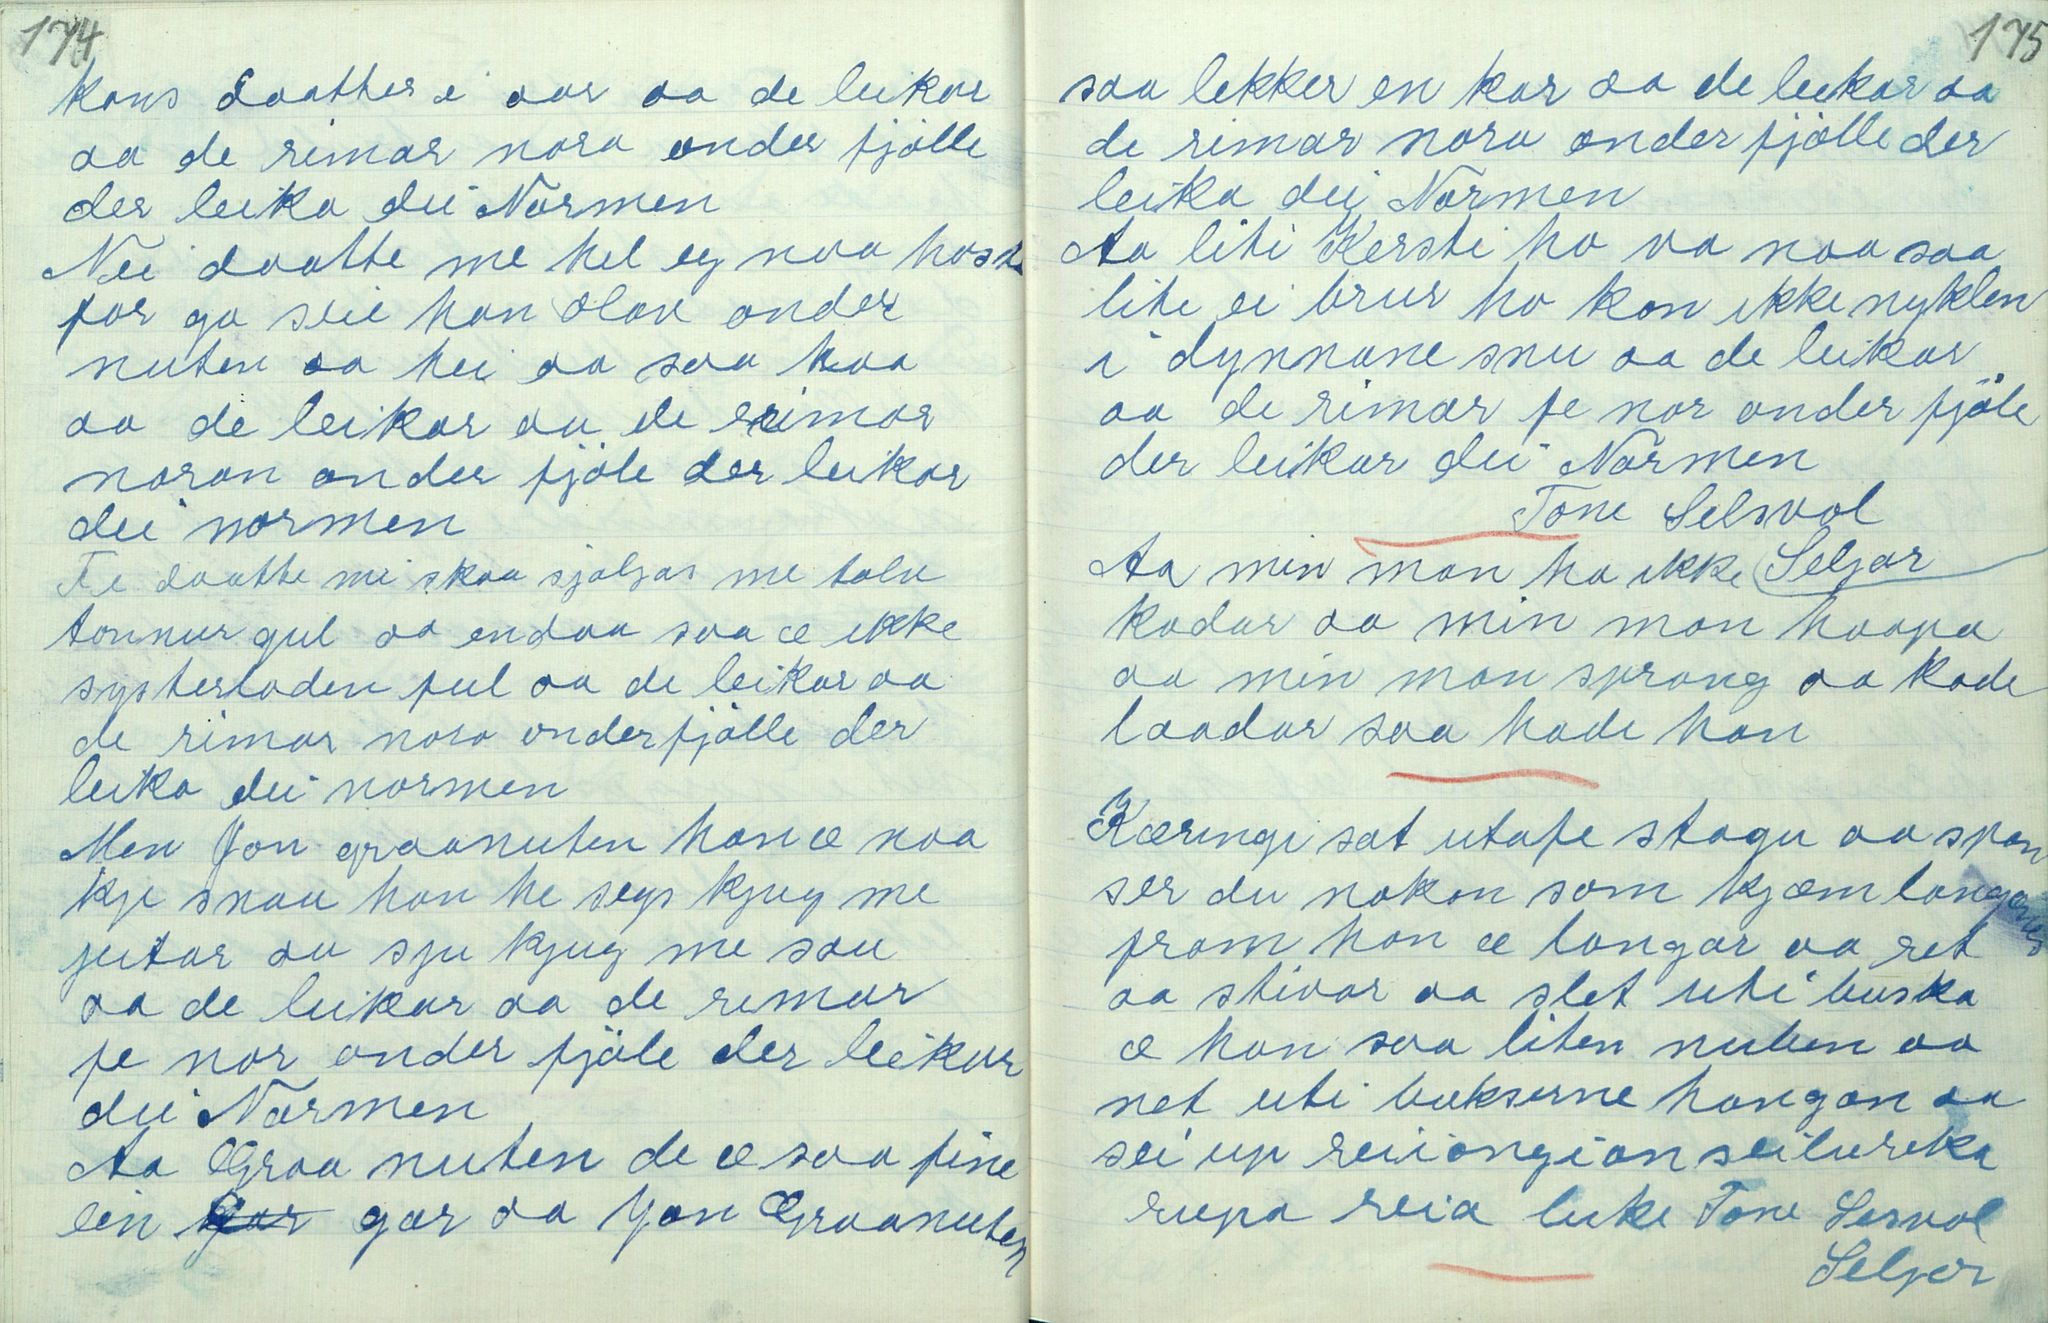 174
kans daatter i aar aa de leikar
aa de rimar nora onder fjölle
der leika dei Normen
Nei daatte me hel eg naa
for ga seie han Olav onder
nuten aa hei aa saa haa
aa de leikar aa de rimar
noran onder fjöle der leikar
dei normen
Fe daatte mi skaa sjølgas me tolv
tonnur gul aa endaa saa æ ikke
systerloden ful aa de leikar aa
de rimar nora onder fjölle der
leika dei normen
Men Jon graanuten han æ naa
kje snau han he segs kjug me
jutar aa sju kjug me sau
aa de leikar aa de rimar
fe nor onder fjöle der leikar
dei Normen
Aa Graa nuten de æ saa fine
ein gar aa Jon Graanuten
175
saa lekker en kar aa de leikar aa
de rimar nora onder fjölle der
leika dei Normen
Aa liti Kersti ho va naa saa
lite ei brur ho kon ikke nyklen
i dynnane snu aa de leikar
aa de rimar fe nor onder fjöle
der leikar dei Normen
Tone Selsvol
Seljor
Aa min man ha ikke
kadar aa min man haapa
aa min man sprang aa kade
laadar saa hade han
Kæringi sat utafe stagu aa span
ser du nokon som kjæm langaner
fram han æ langar aa ret
aa stivar aa slet uti buska
æ han saa liten nuben aa
net uti bukserne hangan aa
sei up
rupa reia leike Tone Sesvol
Seljor